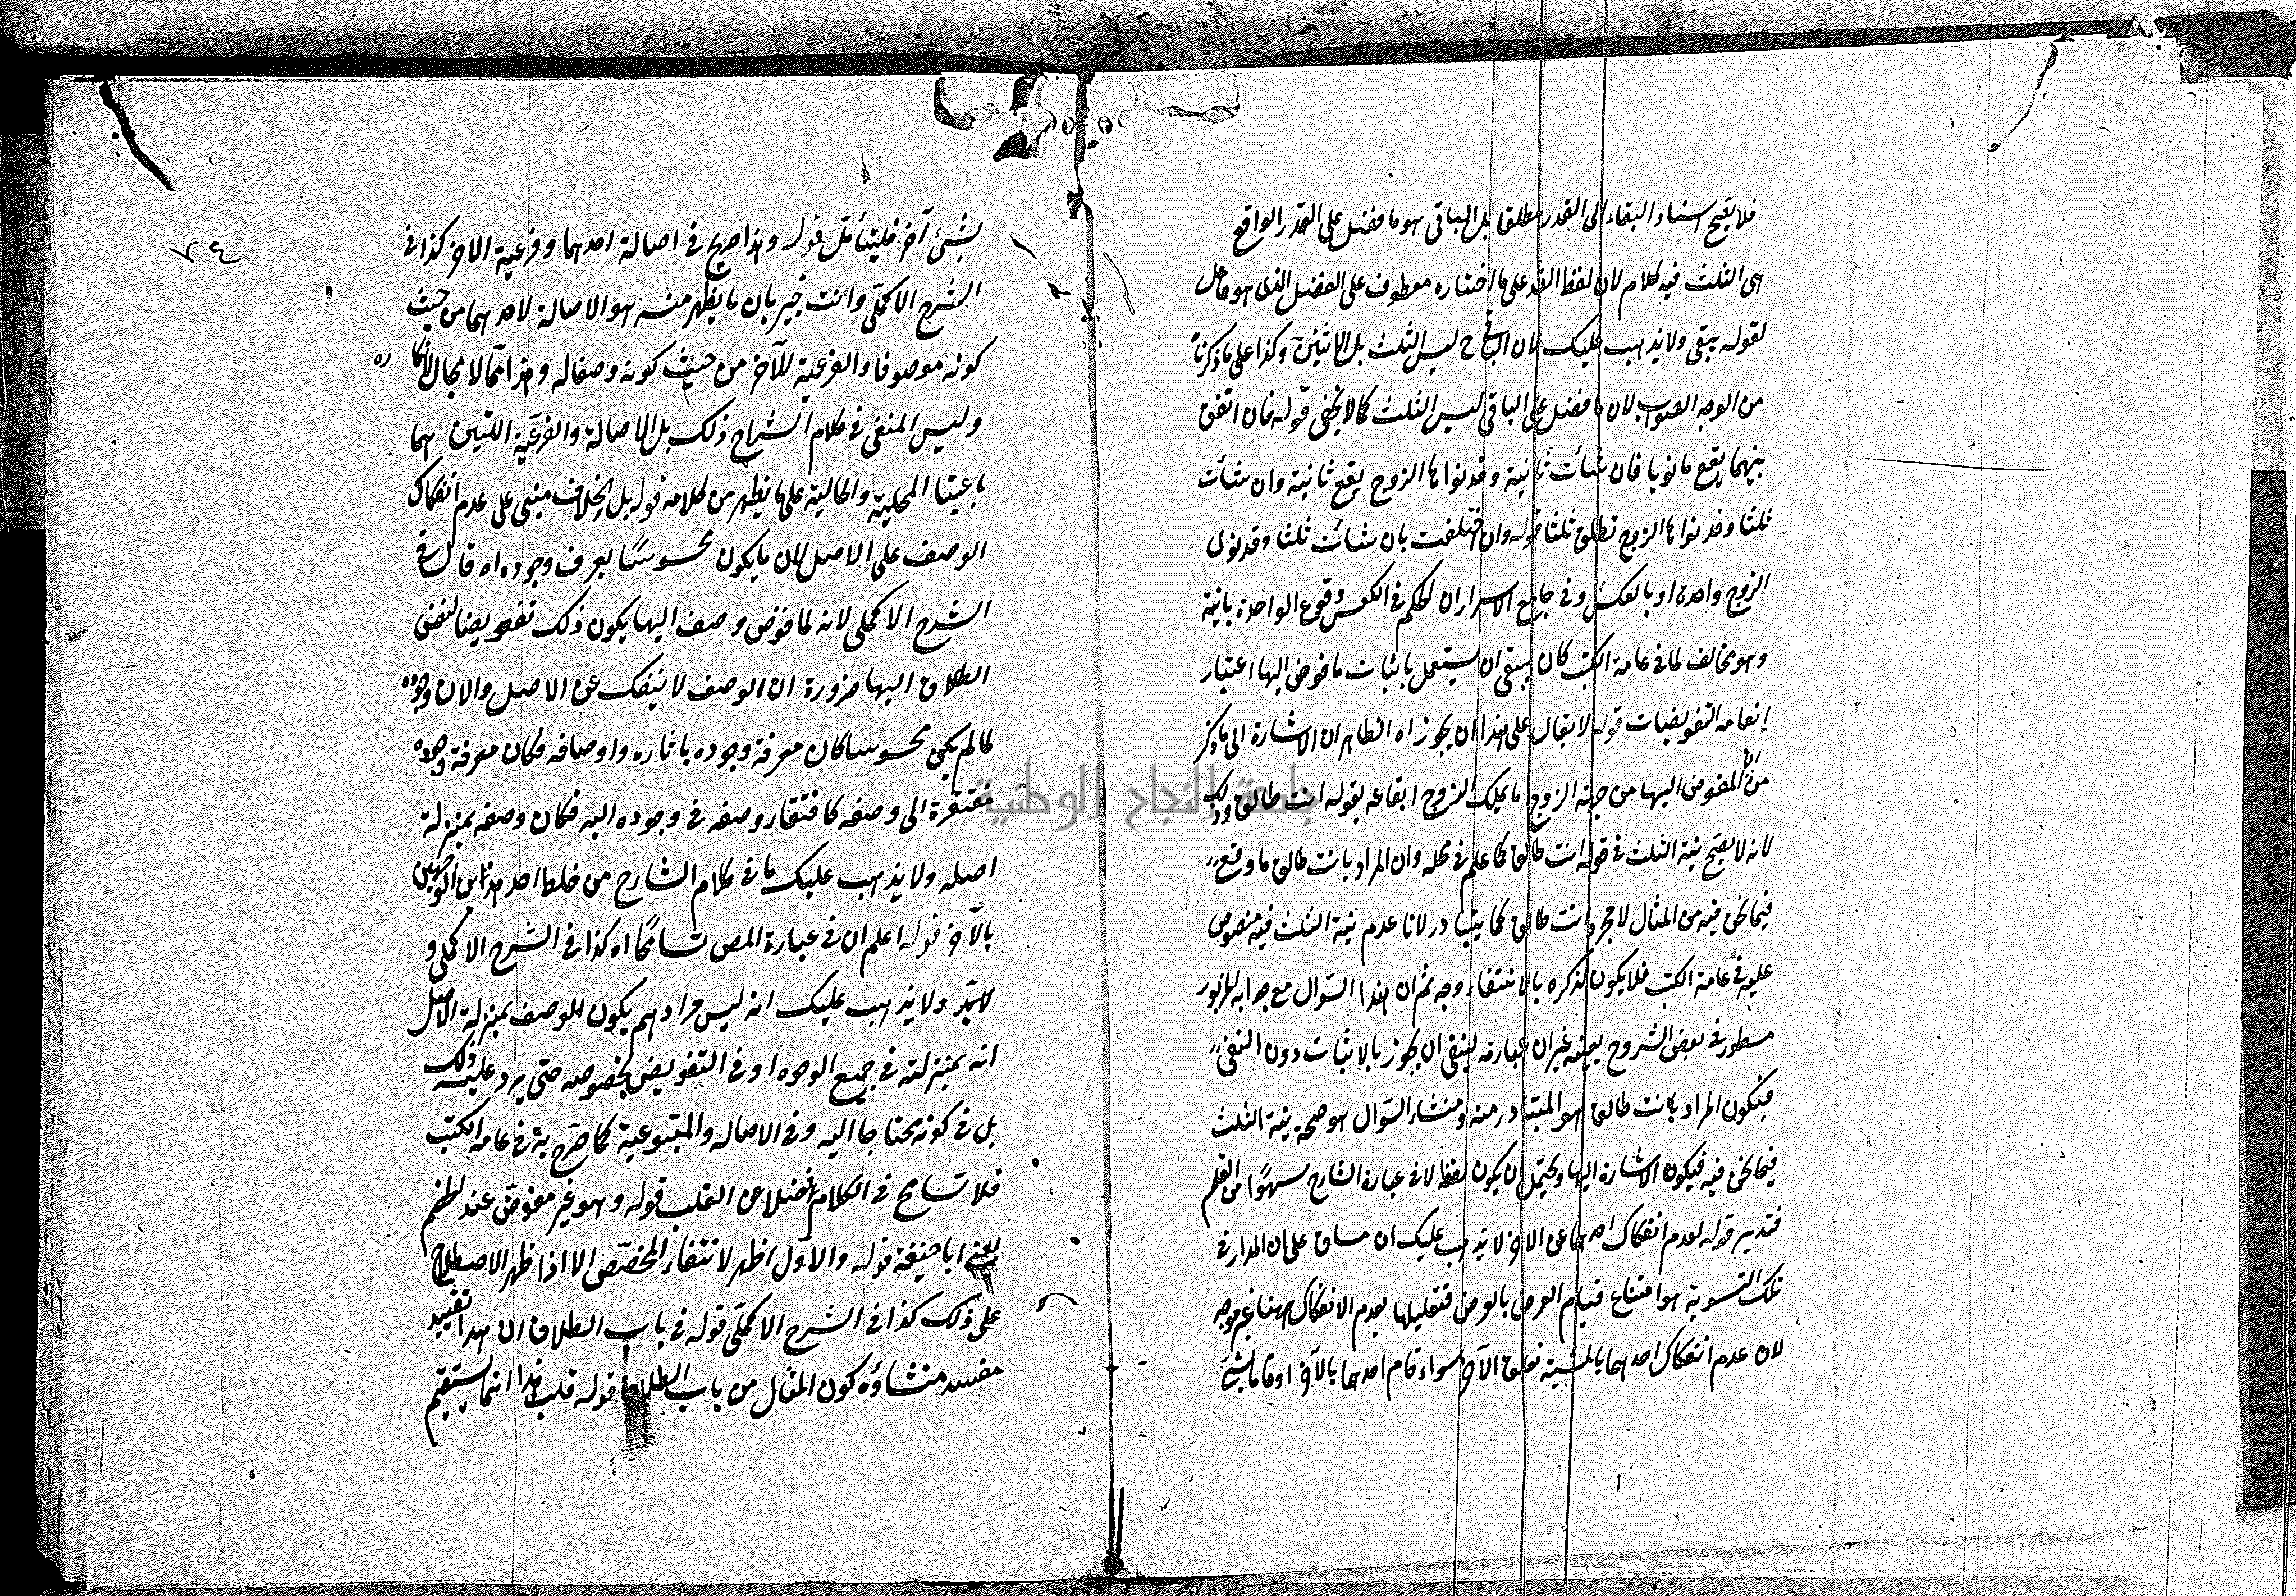 فلا يصح اسناد البقاء الى القدر مطلقا بل الباقى هو ما فضل على القدر الواقع
هى الثلث فيه كلام لان لفظ القدر على ما اختاره معطوف على الفضل الذى هو فاعل
لقوله يبقى ولا يذهب عليك لان الباقى ح ليس الثلث بل الاثنين وكذا على ما ذكرنا
من الوجه الصواب لان ما فضل على الباقى ليس الثلث كما لا يخفى قوله فان اتفق
بينهما يقع ما نويا فان شأت ثانية وقد نواها الزوج يقع ثانية وان شأت
ثلثا وقد نواها الزوج تطلق ثلثا قوله وان اختلفت بان شأت ثلثا وقد نوى
الزوج واحدة او بالعكس وفى جامع الاسرار ان الحكم فى العكس وقوع الواحدة بانية
وهو مخالف لما فى عامة الكتب كان ينبغى ان يستعمل باثبات ما فوض اليها اعتبار
عامه التفويضات قوله لا يقال على هذا ان يجوز اه الظاهر ان الاشارة الى ما ذكر
من ان المفوض اليها من جهة الزوج ما يملك الزوج ايقاعه بقوله انت طالق وذلك
لانه لا يصح نية الثلث فى قوله انت طالق كما علم فى محله وان المراد بانت طالق ما وقع
فيما نحن فيه من المثال لا مجرد انت طالق كما يتبادر لانا عدم نية الثلث فيه منصوص
عليه فى عامة الكتب فلا يكون لذكره بالانتفاء وجه ثم ان هذا السؤال مع جوابه المزبور
مسطور فى بعض الشروح بعينه غير ان عبارته ينبغى ان يجوز بالاثبات دون النفى
فيكون المراد بانت طالق هو المتبادر منه ومنشاء السؤال هو صحة نية الثلث
فيما نحن فيه فيكون الاشارة اليها ويحتمل ان يكون لفظ لا فى عبارة الشارح سهوا من القلم
فتدبر قوله لعدم انفكاك احدهما عن الاخر لا يذهب عليك ان مساق على ان المدار فى
تلك التسوية هو امتناع قيام العرض بالعرض فتعليلها بعدم الانفكاك ههنا غير موجه
لان عدم انفكاك احدهما بالمشية تعلق الآخر سواء قام احدهما بالآخر او قاما بشئ
٢٤
بشئ آخر فليتأمل قوله وهذا صريح فى اصالة احدهما وفرعية الاخر كذا فى
الشرح الاكملى وانت خبير بان ما يظهر منه هو الاصالة لاحدهما من حيث
كونه موصوفا والفرعية للآخر من حيث كونه وصفا له وهذا مما لا مجال لانكاره
وليس المنفى فى كلام الشراح ذلك بل الاصالة والفرعية اللتين هما
باعيتا المحلية والحالية على ما يظهر من كلامه قوله بل الخلاف مبنى على عدم انفكاك
الوصف على الاصل لان ما يكون محسوسا يعرف وجوده اه قال فى
الشرح الاكملى لانه لما فوض وصف اليها يكون ذلك تفويضا لنفس
الطلاق اليها ضرورة ان الوصف لا ينفك عن الاصل والان وجوده
لما لم يكن محسوسا كان معرفة وجوده باثاره واوصافه فكان معرفة وجوده
مفتقرة الى وصفه كافتقار وصفه فى وجوده اليه فكان وصفه بمنزلة
اصله ولا يذهب عليك ما فى كلام الشارح من خلط احد هذين الوجهين
بالآخر قوله اعلم ان فى عبارة المص تسامحا اه كذا فى الشرح الاكملى و
لا بد ولا يذهب عليك انه ليس مرادهم يكون الوصف بمنزلة الاصل
انه بمنزلته فى جميع الوجوه او فى التفويض بخصوصه حتى يرد عليه ذلك
بل فى كونه محتاجا اليه وفى الاصاله والمتبوعية كما صرح به فى عامة الكتب
فلا تسامح فى الكلام فضلا عن القلب قوله وهو غير مفوض عنده
يعنى ابا حنيفة قوله والاول اظهر لانتفاء المخصص الا اذا ظهر الاصطلاح
على ذلك كذا فى الشرح الاكملى قوله فى باب الطلاق ان هذا تقييد
مفسد منشاؤه كون المقال من باب الطلاق قوله قلت هذا انما يستقيم